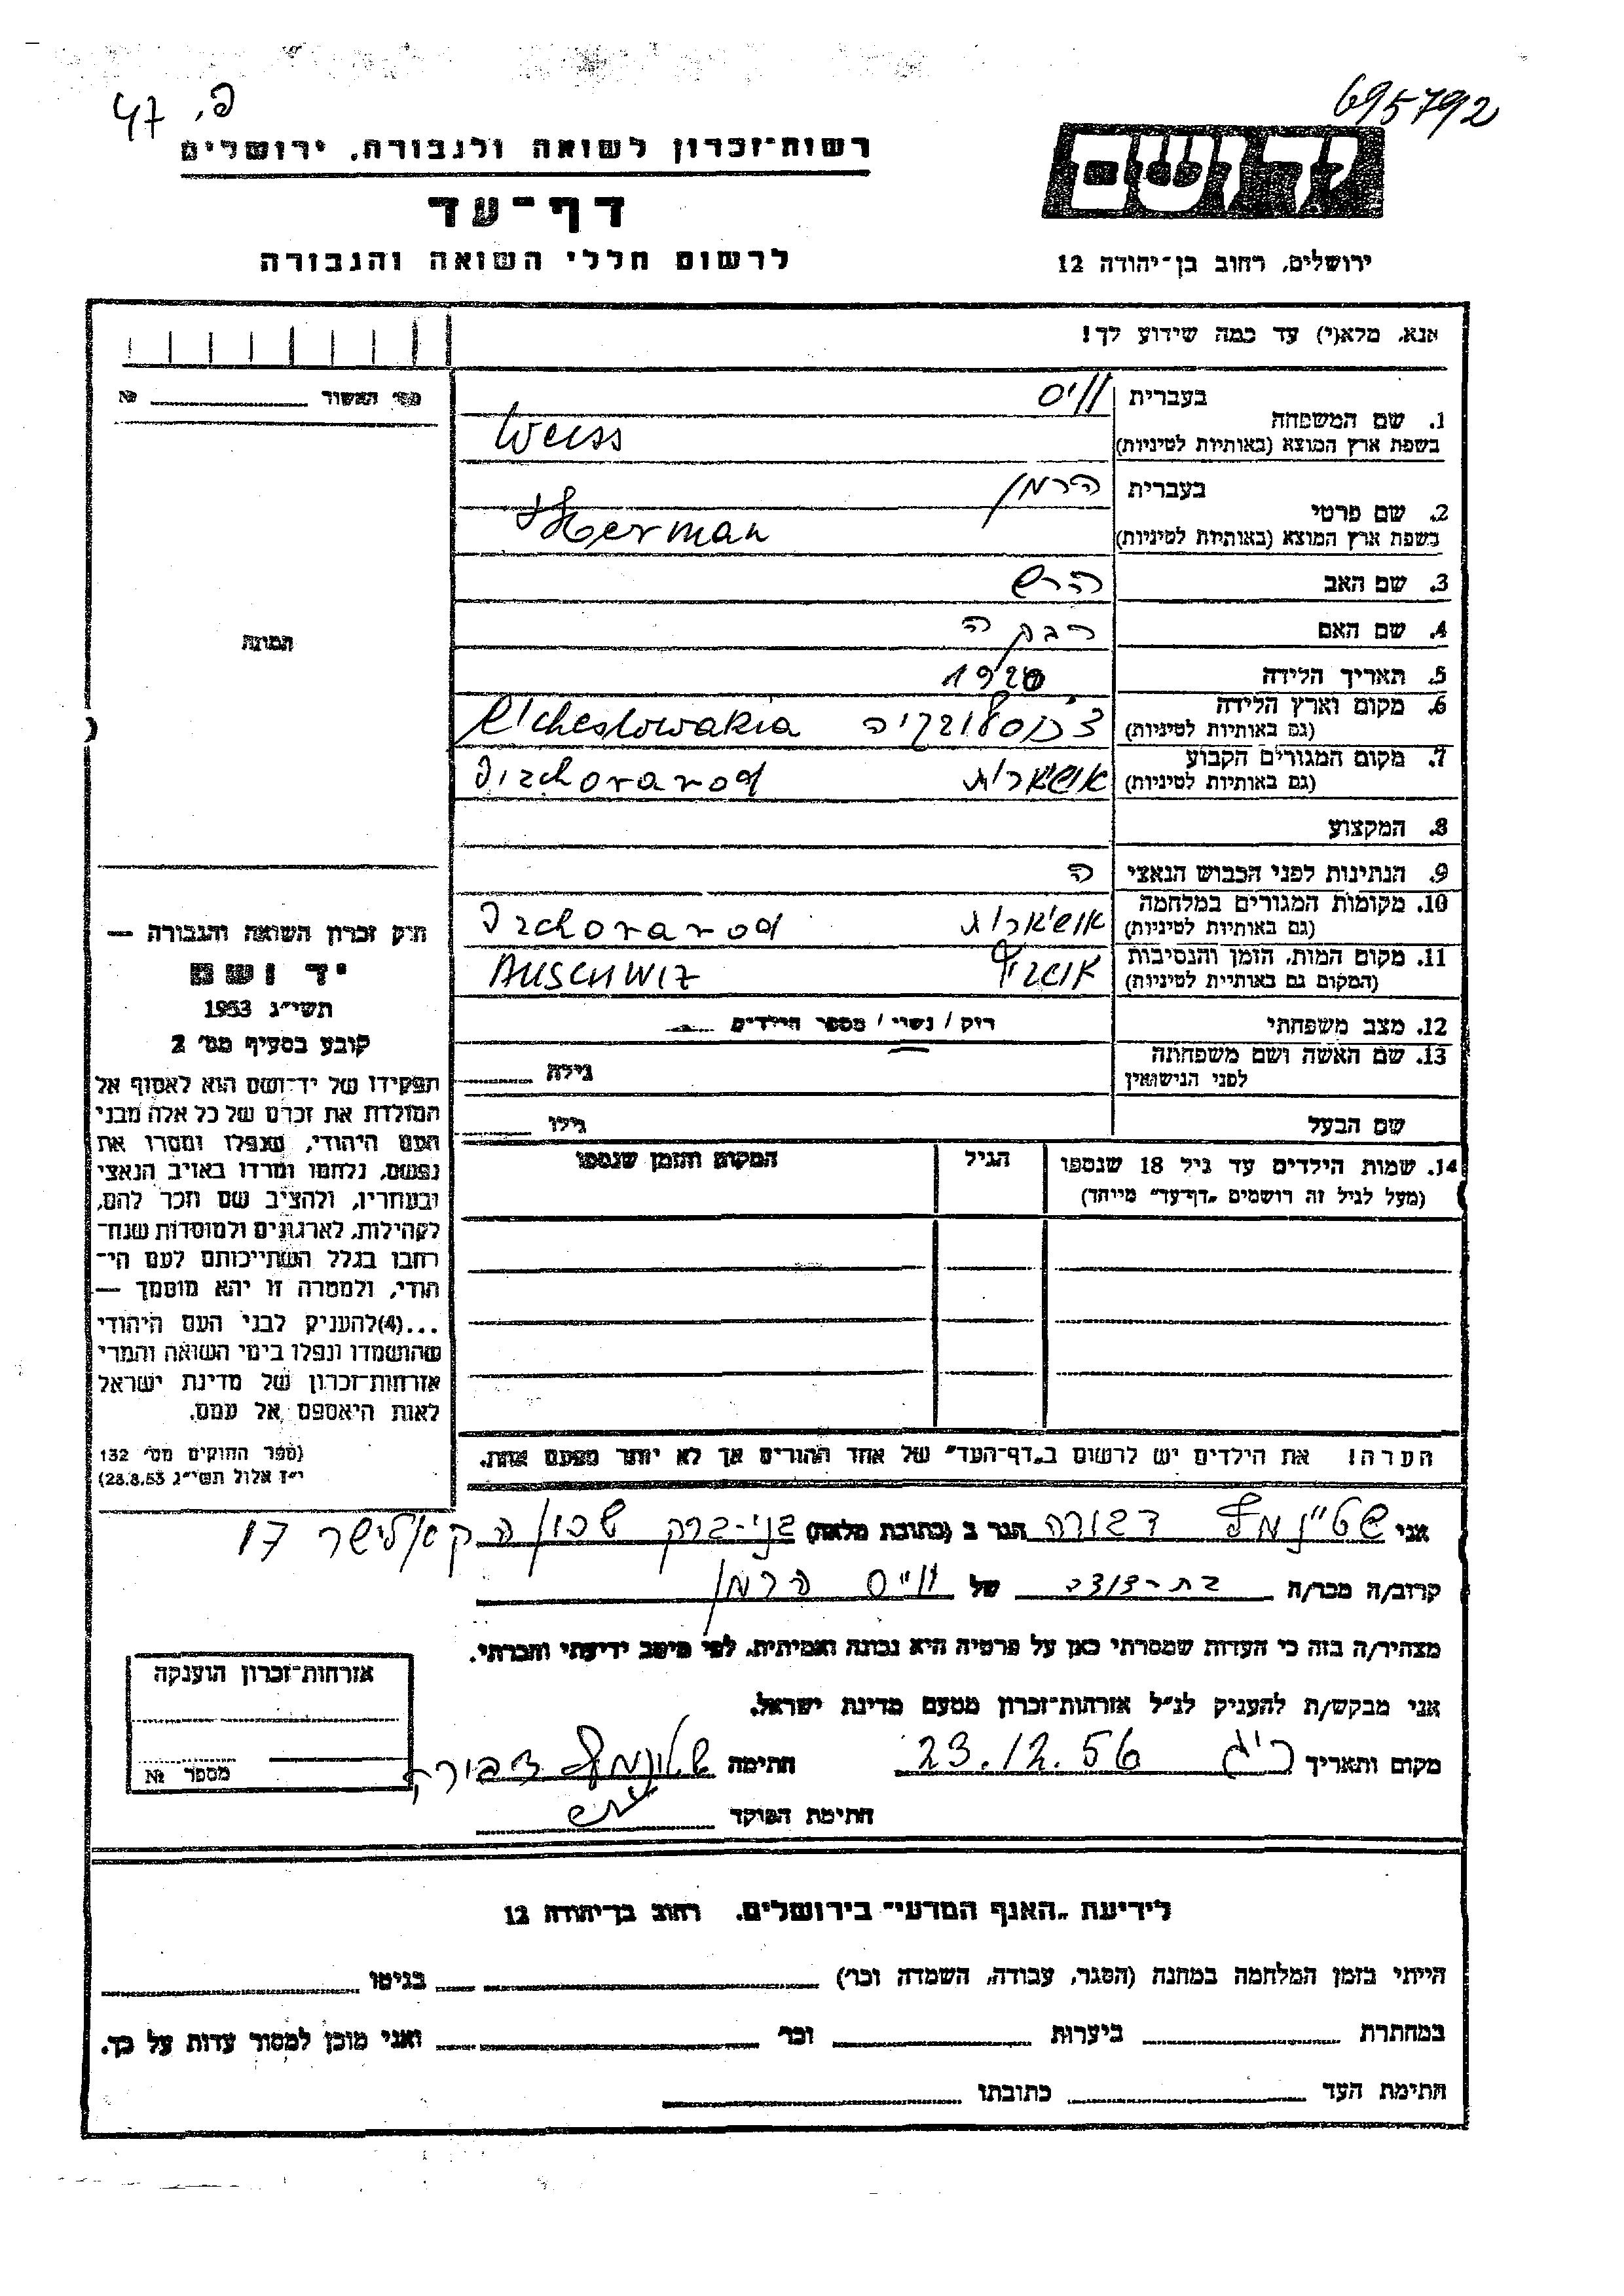 695792
פ. 47
יד ושם
ירושלים, רחוב בן-יהודה 12
רשות-זכרון לשואה ולגבורה, ירושלים
דף-עד
לרשום חללי השואה והגבורה
אנא, מלא(י) עד כמה שידוע לך!
מס׳ האשור № 
1. שם המשפחה בעברית ווייס
בשפת ארץ המוצא (באותיות לטיניות) Weiss
2. שם פרטי בעברית הרמן
בשפת ארץ המוצא (באותיות לטיניות) Herman
3. שם האב הרש
4. שם האם רבקה
5. תאריך הלידה 1920
6. מקום וארץ הלידה
(גם באותיות לטיניות)
7. מקום המגורים הקבוע
(גם באותיות לטיניות)
8. המקצוע
9. הנתינות לפני הכבוש הנאצי
10. מקומות המגורים במלחמה
(גם באותיות לטיניות)
11. מקום המות, הזמן והנסיבות
(המקום גם באותיות לטיניות) AUSCHWIZ
12. מצב משפחתי רוק / נשוי / מספר הילדים
13. שם האשה ושם משפחתה גילה
לפני הנישואין
שם הבעל גילו
14. שמות הילדים עד גיל 18 שנספו הגיל המקום והזמן שנספו
(מעל לגיל זה רושמים „דף-עד" מיוחד)
הערה! את הילדים יש לרשום ב„דף-העד" של אחד ההורים אך לא יותר מפעם אחת.
תמונה
חוק זכרון השואה והגבורה —
יד ושם
תשי"ג 1953
קובע בסעיף מס׳ 2
תפקידו של יד-ושם הוא לאסוף אל
המולדת את זכרם של כל אלה מבני
העם היהודי, שנפלו ומסרו את
נפשם, נלחמו ומרדו באויב הנאצי
ובעוזריו, ולהציב שם וזכר להם,
לקהילות, לארגונים ולמוסדות שנח־
רבו בגלל השתייכותם לעם הי־
הודי, ולמטרה זו יהא מוסמך —
...(4)להעניק לבני העם היהודי
שהושמדו ונפלו בימי השואה והמרי
אזרחות-זכרון של מדינת ישראל
לאות היאספם אל עמם.
(ספר החוקים מס׳ 132
י"ז אלול תשי"ג 28.8.53)
אני דבורה הגר ב (כתובת מלאה) בני-ברק שכון 17
קרוב/ה מכר/ה בת-דודה של ווייס הרמן
מצהיר/ה בזה כי העדות שמסרתי כאן על פרטיה היא נכונה ואמיתית, לפי מיטב ידיעתי והכרתי.
אני מבקש/ת להעניק לנ"ל אזרחות-זכרון מטעם מדינת ישראל.
מקום ותאריך 23.12.56 חתימה
חתימת הפוקד
אזרחות-זכרון הוענקה
מספר №
לידיעת „האגף המדעי" בירושלים, רחוב בן-יהודה 12
הייתי בזמן המלחמה במחנה (הסגר, עבודה, השמדה וכו׳) בגיטו
במחתרת ביערות וכו׳ ואני מוכן למסור עדות על כך.
חתימת העד כתובתו